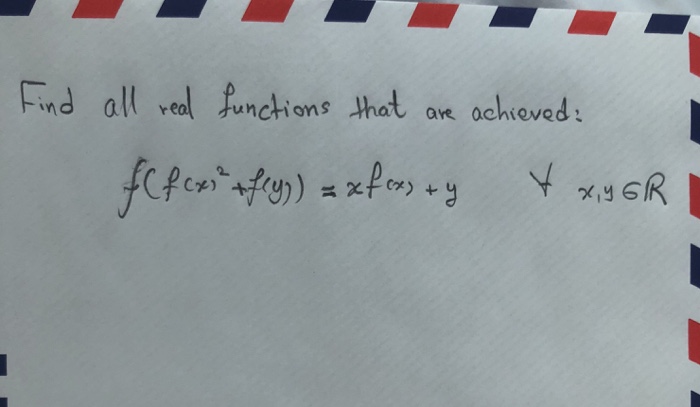 Find all real functions that are achieved:
f(f(x)² + f(y)) = xf(x) + y ∀ x,y ∈ R